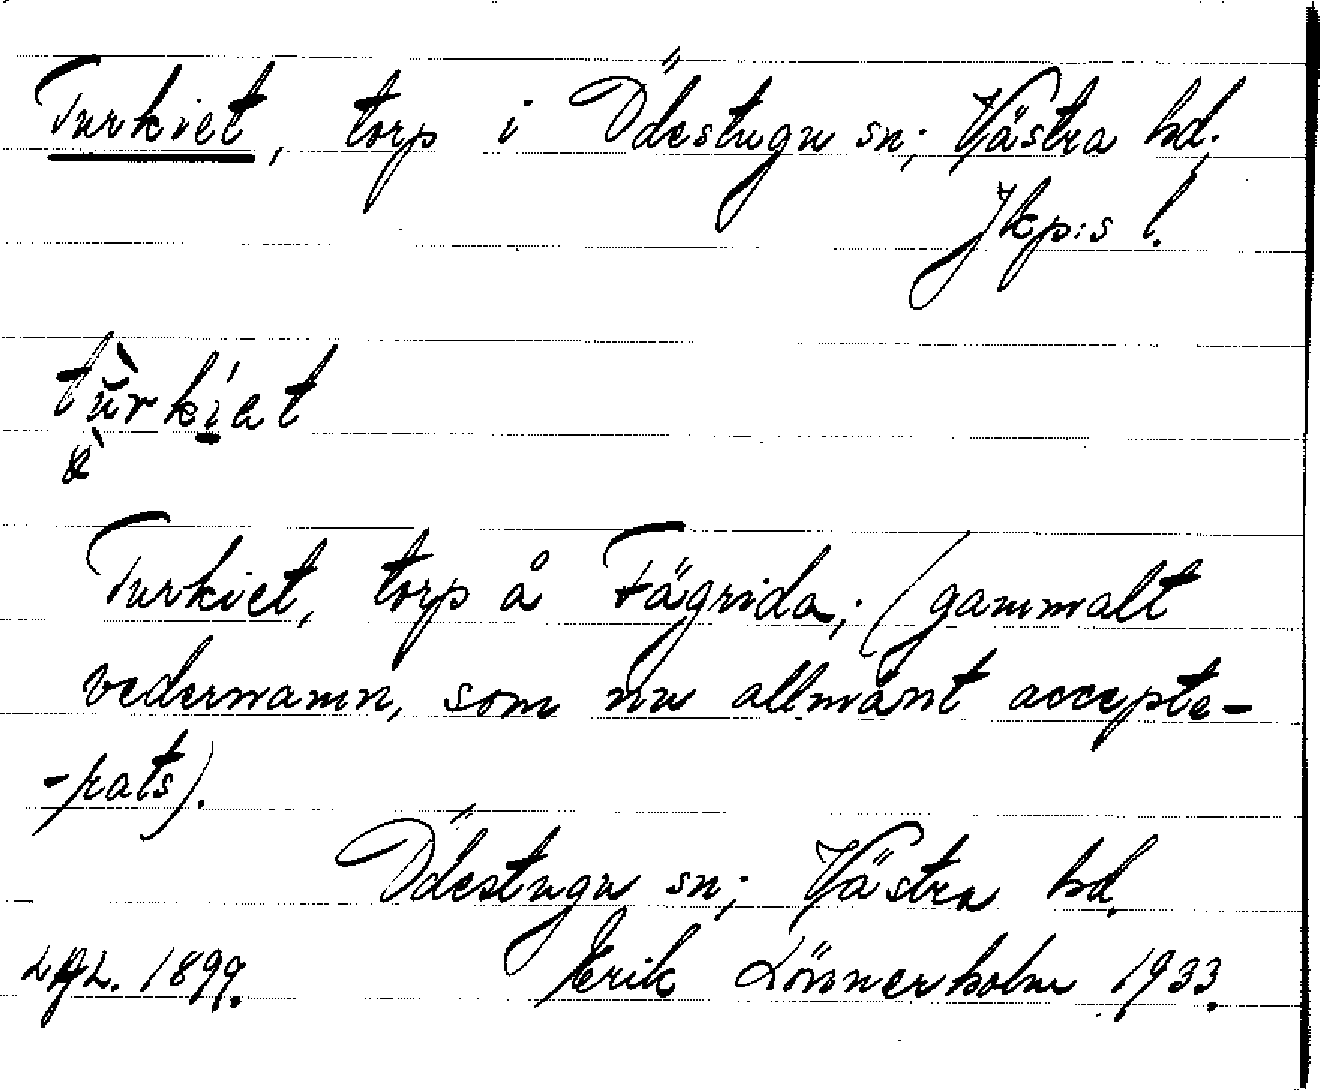 Turkiet, torp i Ödestugu sn; Västra hd.
Jkp:s l.
tùrkíat
Turkiet, torp å Fägrida; (gammalt
vedernamn, som nu allmänt accepte-
-rats).
Ödestugu sn; Västra hd.
1899. Erik Lönnerholm 1933.